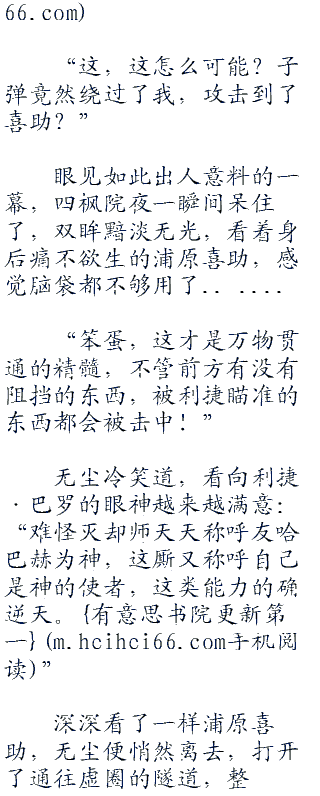 66.com)
“这，这怎么可能？子
弹竟然绕过了我，攻击到了
喜助？”
眼见如此出人意料的一
幕，四枫院夜一瞬间呆住
了，双眸黯淡无光，看着身
后痛不欲生的浦原喜助，感
觉脑袋都不够用了.. ....
“笨蛋，这才是万物贯
通的精髓，不管前方有没有
阻挡的东西，被利捷瞄准的
东西都会被击中！”
无尘冷笑道，看向利捷
·巴罗的眼神越来越满意：
“难怪灭却师天天称呼友哈
巴赫为神，这厮又称呼自己
是神的使者，这类能力的确
逆天。{有意思书院更新第
一}(m.hcihci66.com手机阅
读)”
深深看了一样浦原喜
助，无尘便悄然离去，打开
了通往虚圈的隧道，整